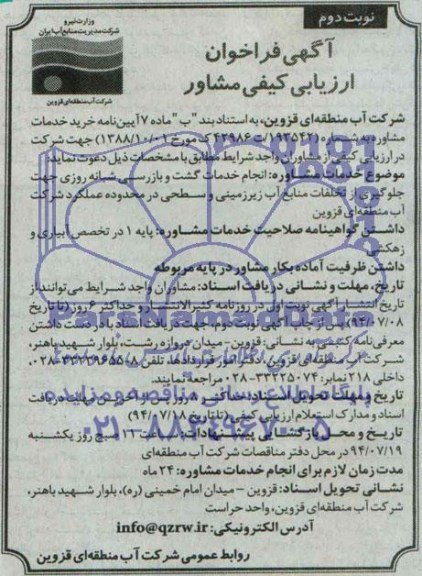 نوبت دوم
وزارت نیرو
شرکت مدیریت منابع آب ایران
شرکت آب منطقه‌ای قزوین
آگهی فراخوان
ارزیابی کیفی مشاور
شرکت آب منطقه‌ای قزوین، به استناد بند "ب" ماده ۷ آیین‌نامه خرید خدمات
مشاوره به شماره (۱۹۳۵۴۲/ت ۴۲۹۸۶ ک مورخ ۱۳۸۸/۱۰/۰۱) جهت شرکت
در ارزیابی کیفی از مشاوران واجد شرایط مطابق با مشخصات ذیل دعوت نماید:
موضوع خدمات مشاوره: انجام خدمات گشت و بازرسی شبانه روزی جهت
جلوگیری از تخلفات منابع آب زیرزمینی و سطحی در محدوده عملکرد شرکت
آب منطقه‌ای قزوین
داشتن گواهینامه صلاحیت خدمات مشاوره: پایه ۱ در تخصص آبیاری و
زهکشی
داشتن ظرفیت آماده بکار مشاور در پایه مربوطه
تاریخ، مهلت و نشانی دریافت اسناد: مشاوران واجد شرایط می‌توانند از
تاریخ انتشار آگهی نوبت اول در روزنامه کثیرالانتشار و حداکثر ۶ روز (تا تاریخ
۹۴/۰۷/۰۸) پس از چاپ آگهی نوبت دوم، جهت دریافت اسناد با در دست داشتن
معرفی‌نامه کتبی به نشانی: قزوین - میدان دروازه رشت، بلوار شهید باهنر،
شرکت آب منطقه‌ای قزوین، دفتر امور قراردادها، تلفن ۸-۳۳۳۹۶۵۵ - ۰۲۸،
داخلی ۲۱۸ نمابر: ۳۳۲۲۵۰۷۴ - ۰۲۸ مراجعه نمایند.
تاریخ و مهلت تحویل اسناد: حداکثر روز پس از آخرین مهلت دریافت
اسناد و مدارک استعلام ارزیابی کیفی (تا تاریخ ۹۴/۰۷/۱۸)
تاریخ و محل بازگشایی پیشنهادات: ساعت ۱۲ صبح روز یکشنبه
۹۴/۰۷/۱۹ در محل دفتر مناقصات شرکت آب منطقه‌ای
مدت زمان لازم برای انجام خدمات مشاوره: ۲۴ ماه
نشانی تحویل اسناد: قزوین - میدان امام خمینی (ره)، بلوار شهید باهنر،
شرکت آب منطقه‌ای قزوین، واحد حراست
آدرس الکترونیکی: info@qzrw.ir
روابط عمومی شرکت آب منطقه‌ای قزوین
ParsNamadData
پایگاه اطلاع رسانی مناقصه و مزایده
۰۲۱-۸۸۳۴۹۶۷۰-۵